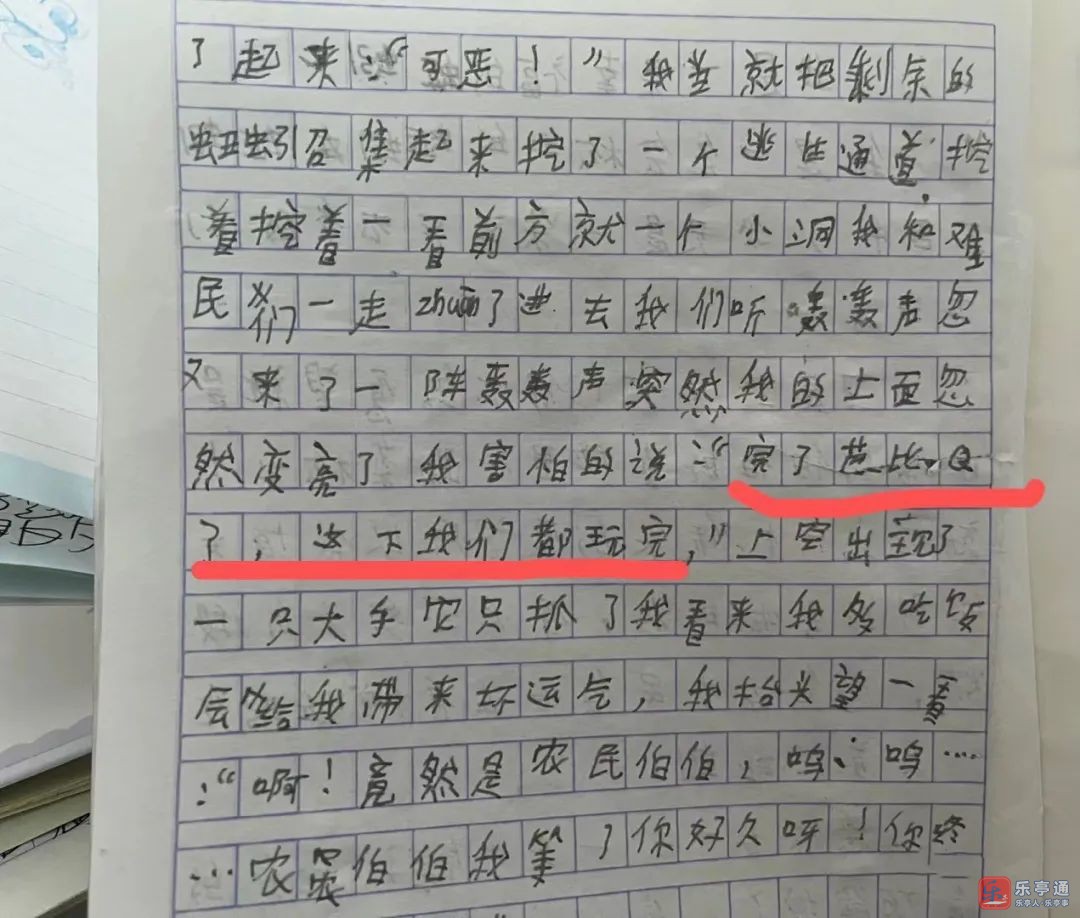 了起来:“可恶!”我并就把剩余的
蚯蚓召集起来挖了一个逃生通道.挖
着挖着一看前方就一个小洞我和难
民们一走zhuan了进去我们听轰轰声忽
又来了一阵轰轰声突然我的上面忽
然变亮了我害怕的说:“完了芭比Q
了,这下我们都玩完,”上空出现了
一只大手它只抓了我看来我多吃饭
会给我带来坏运气,我抬头望一看
:“啊!竟然是农民伯伯,呜、呜…
…农农伯伯我等了你好久呀!你终
乐亭通
乐亭人·乐亭事